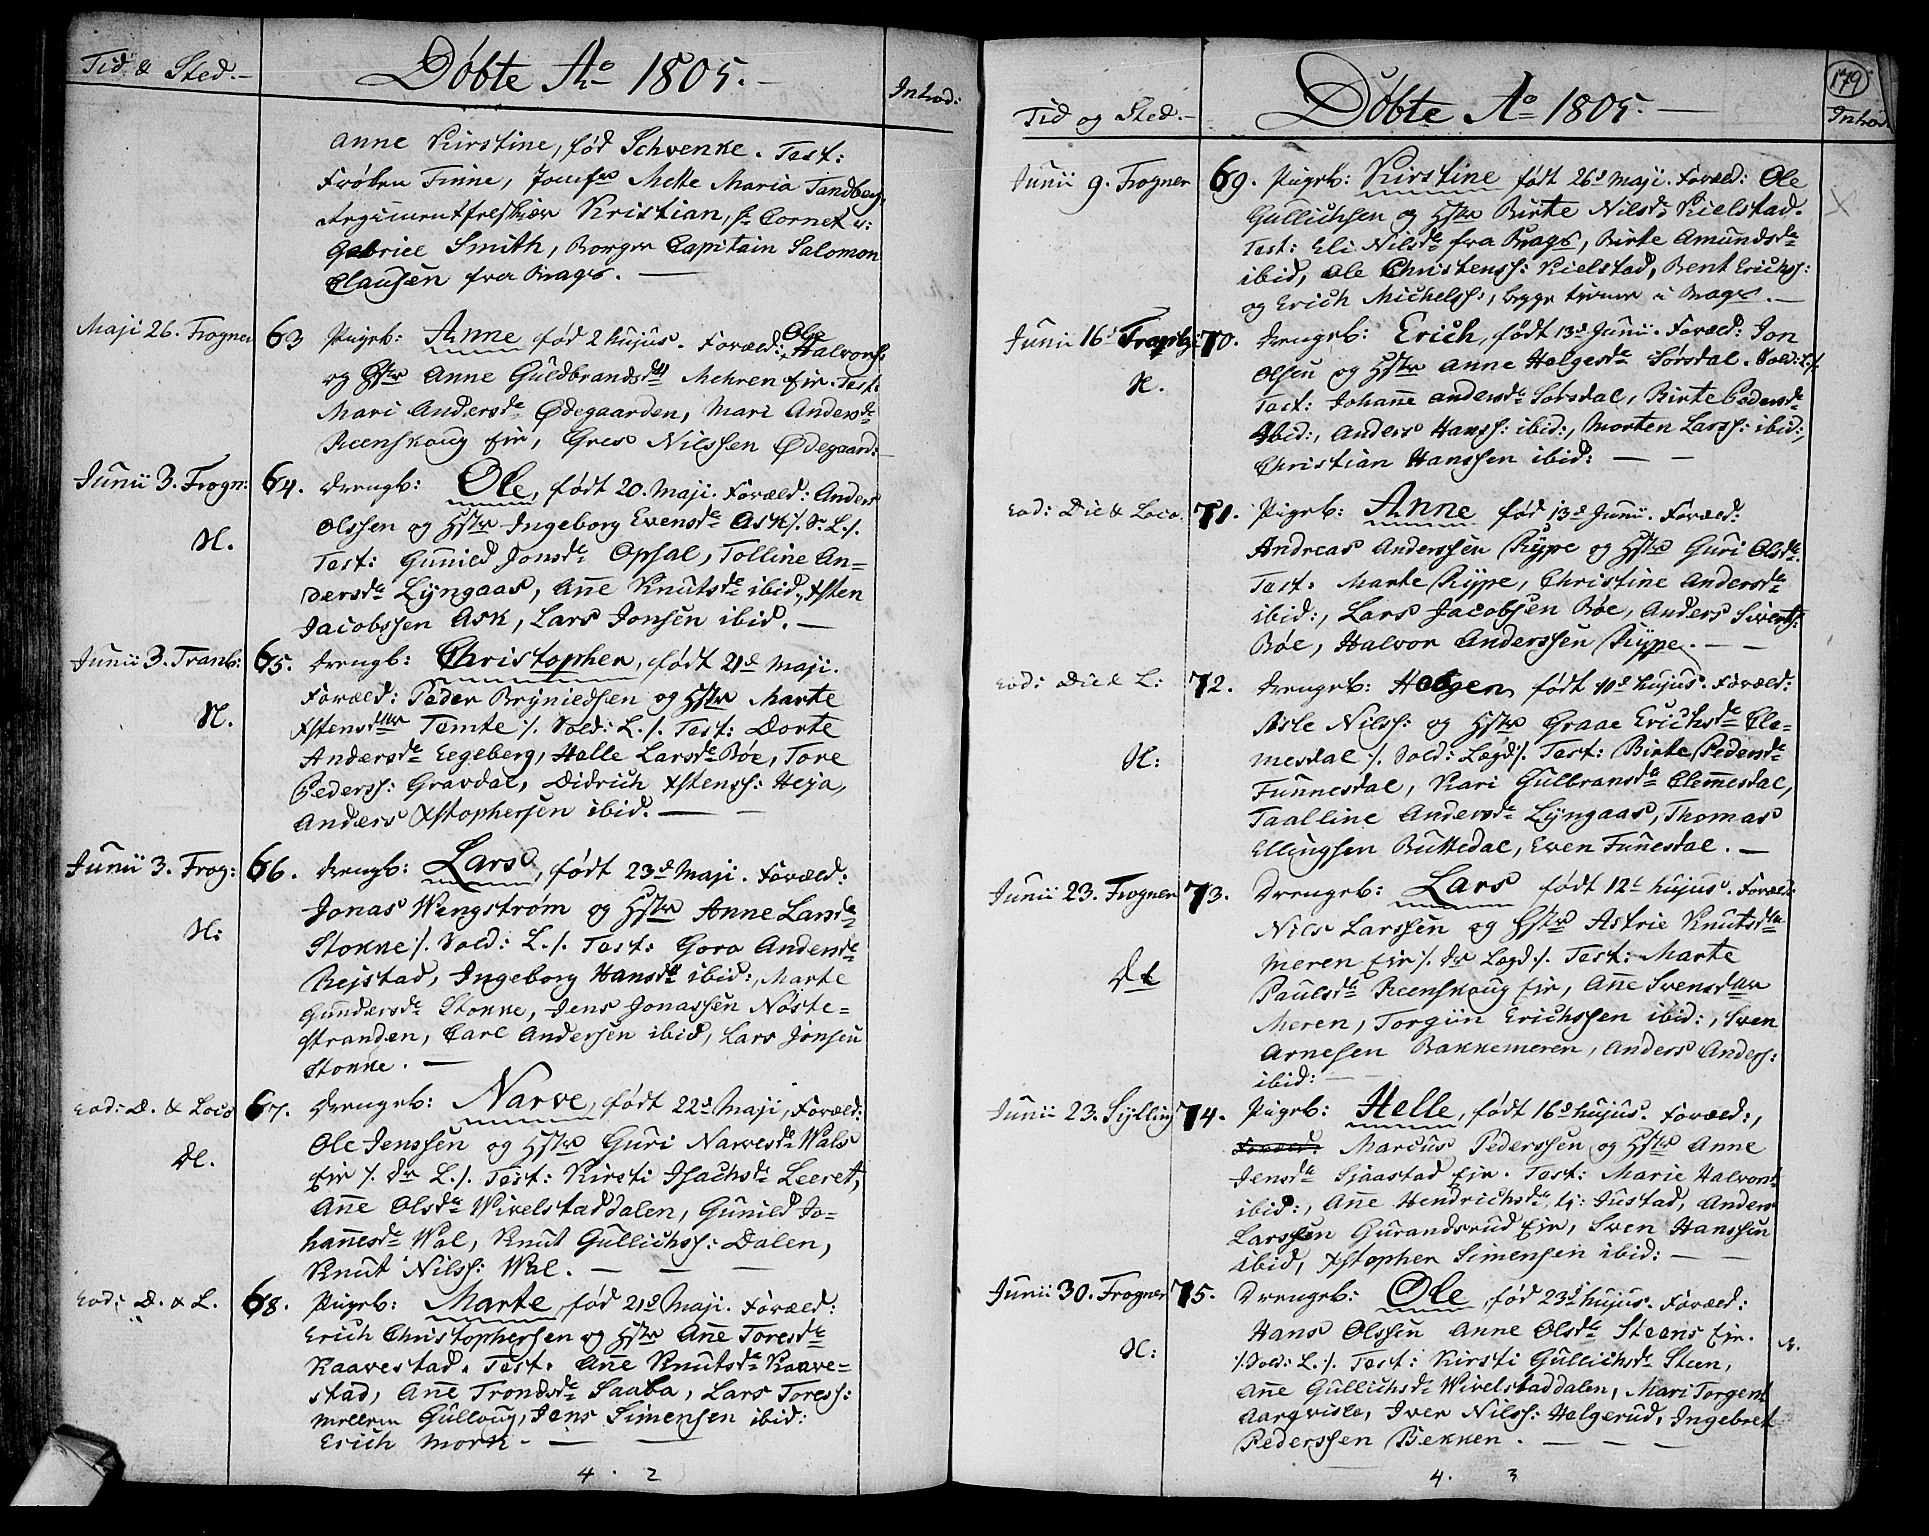 Tid & Sted.-
Døbte Ao 1805.-
Introd:
Anne Kirstine, fød Schvenke. Test:
Frøken Finne, Jomfr Mette Maria Tandberg,
Kristian, Cornet
Gabriel Smith, Borger Capitain Salomon
Clausen fra Brags. —
Maji 26. Frogner 63 Pigeb: Anne fød 2 hujus. Foræld: Ole Halvors:
og Hstr Anne Guldbrandsdtr Mehren Eir. Test:
Mari Andersdr Ødegaarden, Mari Andersdr
Reenskoug Eir, Gres Nilssen Ødegaard:
Junii 3. Frogn: 64. Drengb: Ole, født 20. Maji. Foræld: Anders
Olssen og Hstr Ingeborg Evensdr Ask /. S. L./.
N.
Test: Gunild Jonsdr Opsal, Tolline An-
dersdr Lyngaas, Añe Knutsdr ibid, Xsten
Jacobssen Ask, Lars Jonsen ibid. —
Junii 3. Tranb: 65. Drengb: Christopher, født 21d Maji.
Foræld: Peder Bryniedsen og Hstr Marte
N.
Xstensdttr Temte /. Sold: L./. Test: Dorte
Andersdr Eegeberg, Helle Larsdr Bøe, Tore
Pederss: Gravdal, Didrich Xstenss: Heja,
Anders Xstophersen ibid. — —
Junii 3. Frog: 66. Drengb: Lars, født 23d Maji. Foræld:
Jonas Wengstrøm og Hstr Anne Larsdr
N:
Stokke /. Sold: L./. Test: Goro Andersdr
Rejstad, Ingeborg Hansdr ibid:, Marte
Gundersdr Stokke, Jens Jonassen Nøste-
stranden, Carl Andersen ibid, Lars Jonsen
Stokke. —
Eod: D. & Loco 67. Drengeb: Narve, født 22d Maji, Foræld:
Ole Jenssen og Hstr Guri Narvesdr Wals
N.
Eir /. dr L./. Test: Kirsti Isachsdr Leeret,
Añe Olsdr Wivelstaddalen, Gunild Jo-
hañesdr Wal, Knut Gullichss: Dalen,
Knut Nilss: Wal. — — —
Eod: D. & L. 68. Pigeb: Marte, fød 21d Maji. Foræld:
Erich Christophersen og Hstr Añe Toresdr
Kaavestad. Test: Añe Knutsdr Kaave-
stad, Añe Trondsdr Saaba, Lars Toress:
Gulloug, Jens Simensen ibid:
Erich Mork. — —
4. 2
179
Tid og Sted.-
Døbte Ao 1805. —
Introd.
Junii 9. Frogner 69. Pigeb: Kirstine født 26d Maji. Foræld: Ole
Gullichsen og Hstr Birte Nilsdr Kielstad.
Test: Eli Nilsdr fra Brags, Birte Amundsdr
ibid, Ole Christenss: Kielstad, Bent Erichss:
og Erich Michelss:, begge i Brags. —
Junii 16d 70. Drengeb: Erich, født 13d Junii. Foræld: Jon
Olsen og Hstr Anne Helgesdr Sørsdal. Sold: L./.
N.
Test: Johañe Andersdr Sørsdal, Birte Pedersdr
ibid:, Anders Hanss: ibid:, Morten Larss: ibid:,
Christian Hanssen ibid: — —
Eod: Die & Loco. 71. Pigeb: Anne fød 13d Junii. Foræld:
Andreas Anderssen Rype og Hstr Guri Olsdr.
Test: Marte Rype, Christine Andersdr
ibid:, Lars Jacobsen Bøe, Anders Siverts:
Bøe, Halvor Anderssen Rype. — —
Eod: Die & L: 72. Drengeb: Helgen født 11d hujus. Foræld:
Asle Nilss: og Hstr Graae Erichsdr Cle-
N:
mesdal /. Sold: Lægd /. Test: Birte Pedersdr
Funnesdal, Kari Gulbransdr Clemesdal,
Taalline Andersdr Lyngaas, Thomas
Ellingsen Buttedal, Even Funesdal. —
Junii 23. Frogner 73. Drengeb: Lars født 12t hujus. Foræld:
Nils Larssen og Hstr Astrie Knutsdtr
Meren Eir /. dr Lægd /. Test: Marte
Dt
Paulsdr Reenskoug Eir, Añe Svensdttr
Meren, Torgiin Erichssen ibid:, Sven
Arnesen Bakkemeren, Anders Anders:
ibid: —
Junii 23. Sylling 74. Pigeb: Helle, født 16d hujus. Foræld:,
Foræld: Marcus Pederssen og Hstr Anne
Jensdr Sjaastad Eir. Test: Marie Halvors
ibid:, Añe Hendrichsdr Justad, Anders
Larssen Gurandsrud Eir, Sven Hanssen
ibid, Xstopher Simensen ibid: — —
Junii 30. Frogner 75. Drengeb: Ole, fød 23d hujus. Foræld:
Hans Olssen Anne Olsdr Steens Eir.
N:
/. Sold: L./. Test: Kirsti Gullichsdr Steen,
Añe Gullichsdr Wivelstaddalen, Mari Torgens
Aarqvisle, Iver Nilss: Helgerud, Ingebret
Pederssen Bekken. — — —
4. 3